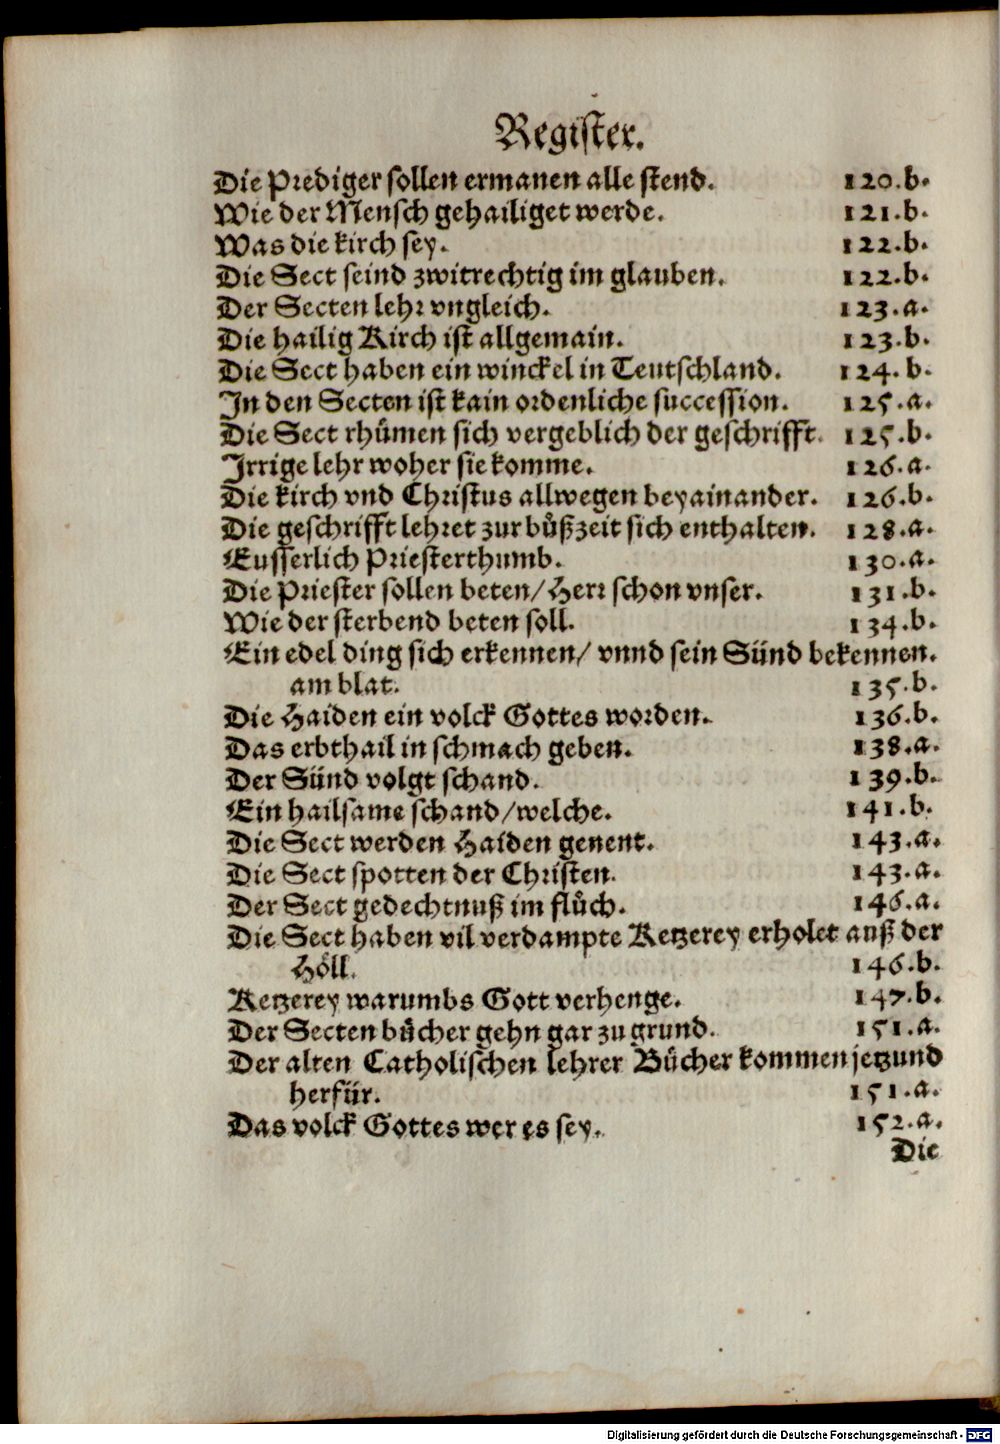 Register.
Die Prediger sollen ermanen alle stend. 120.b.
Wie der Mensch gehailiget werde. 121.b.
Was die kirch sey. 122.b.
Die Sect seind zwitrechtig im glauben. 122.b.
Der Secten lehr vngleich. 123.a.
Die hailig Kirch ist allgemain. 123.b.
Die Sect haben ein winckel in Teutschland. 124.b.
In den Secten ist kain ordenliche succession. 125.a.
Die Sect rhůmen sich vergeblich der geschrifft. 125.b.
Irrige lehr woher sie komme. 126.a.
Die kirch vnd Christus allwegen beyainander. 126.b.
Die geschrifft lehret zur bůßzeit sich enthalten. 128.a.
Eusserlich Priesterthumb. 130.a.
Die Priester sollen beten/ Herr schon vnser. 131.b.
Wie der sterbend beten soll. 134.b.
Ein edel ding sich erkennen/ vnnd sein Sünd bekennen.
am blat. 135.b.
Die Haiden ein volck Gottes worden. 136.b.
Das erbthail in schmach geben. 138.a.
Der Sünd volgt schand. 139.b.
Ein hailsame schand/welche. 141.b.
Die Sect werden Haiden genent. 143.a.
Die Sect spotten der Christen. 143.a.
Der Sect gedechtnuß im flůch. 146.a.
Die Sect haben vil verdampte Ketzerey erholet auß der
Höll. 146.b.
Ketzerey warumbs Gott verhenge. 147.b.
Der Secten bücher gehn gar zu grund. 151.a.
Der alten Catholischen lehrer Bücher kommen jetzund
herfür. 151.a.
Das volck Gottes wer es sey. 152.a.
Die
Digitalisierung gefördert durch die Deutsche Forschungsgemeinschaft - DFG